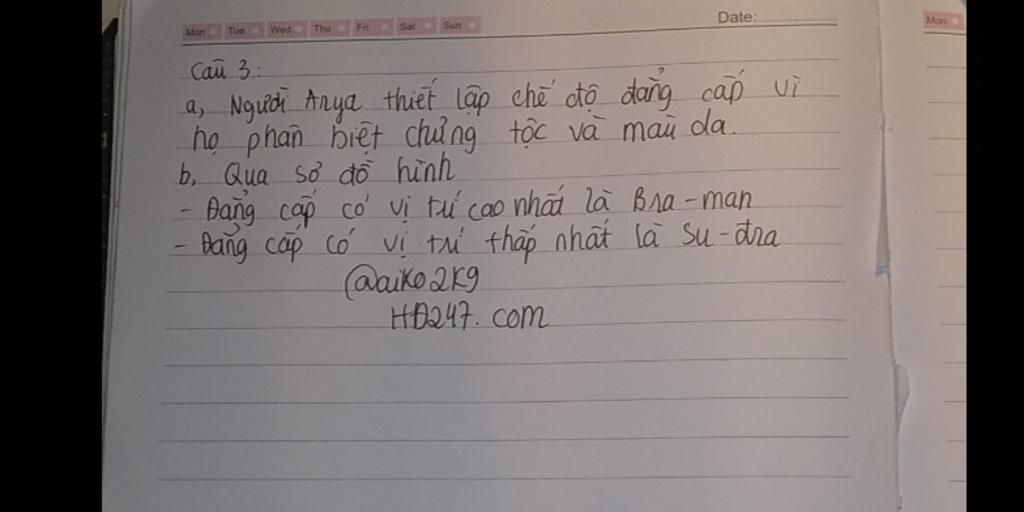 Mon Tue Wed Thu Fri Sat Sun Date: Mon
Câu 3:
a, Người Arya thiết lập chế độ đẳng cấp vì
họ phân biệt chủng tộc và màu da.
b, Qua sơ đồ hình
- Đẳng cấp có vị trí cao nhất là Bra-man
- Đẳng cấp có vị trí thấp nhất là Su-đra
@aiko2k9
HĐ247.com